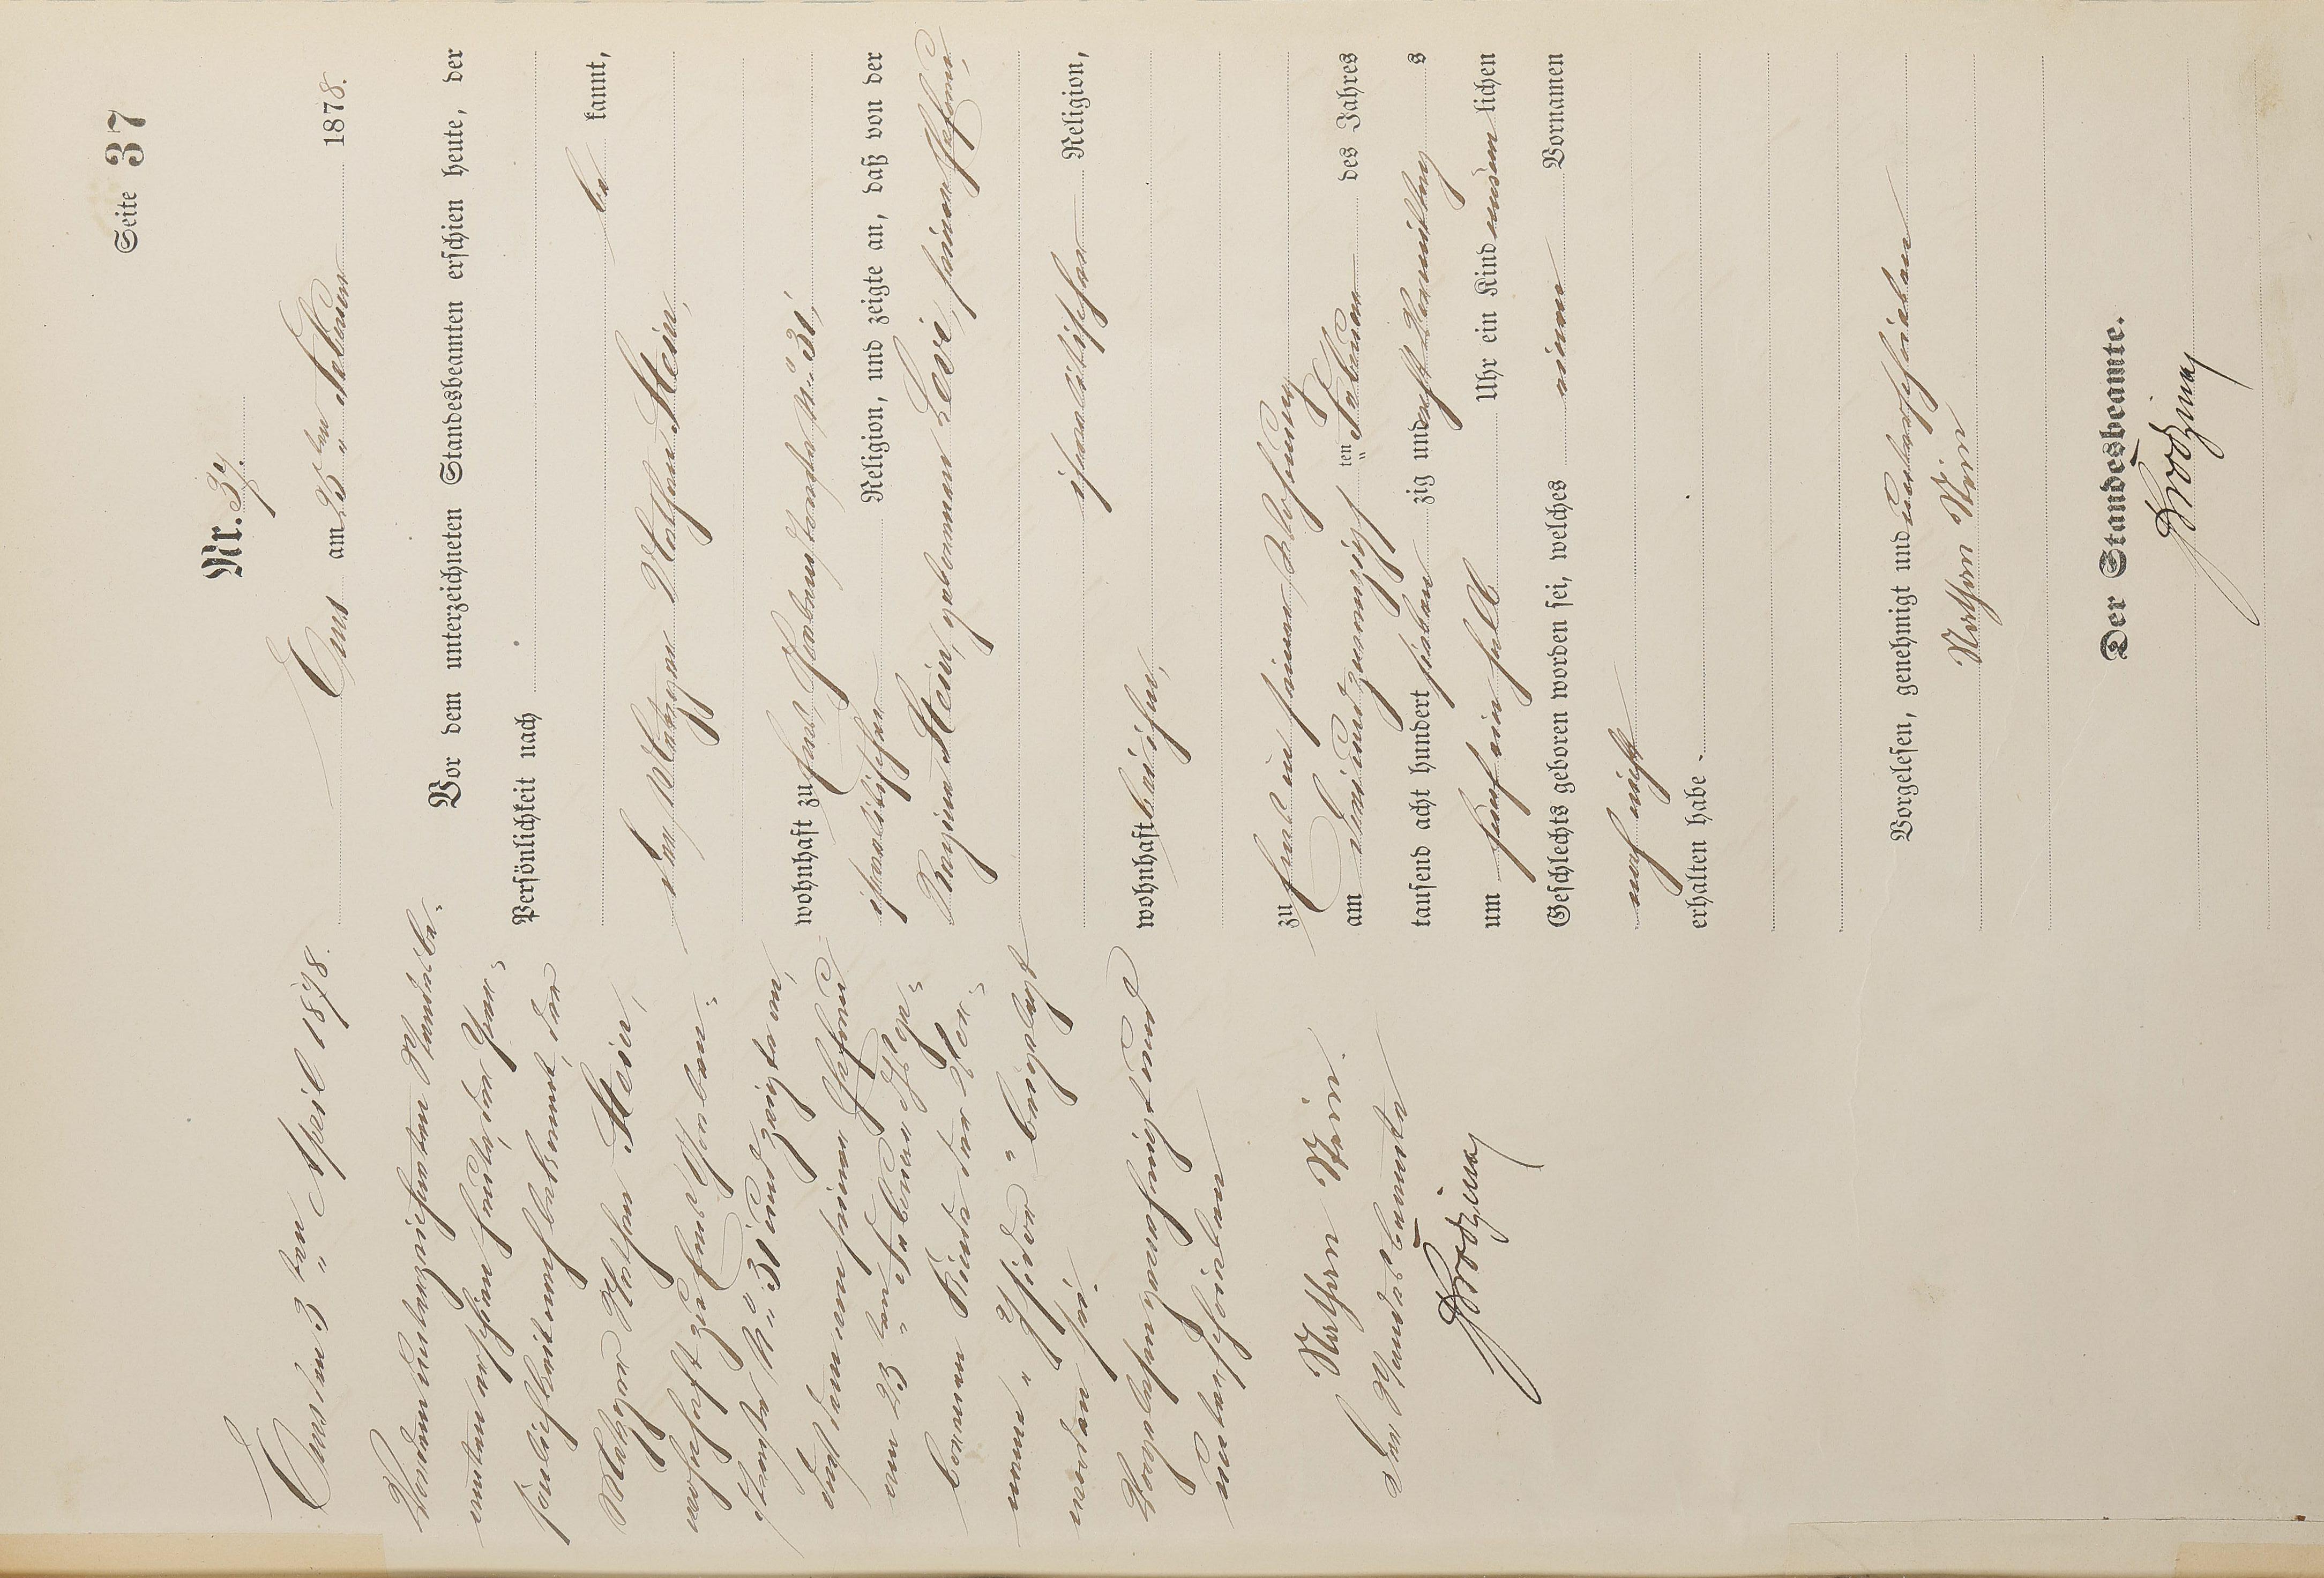 Seite 37
Nr. 37.
Ems am 25ten Februar 1878.
Vor dem unterzeichneten Standesbeamten erschien heute, der
Persönlichkeit nach
be kannt,
der Metzger Nathan Stein,
wohnhaft zu Ems, Grabenstraße No 31,
israelitischer Religion, und zeigte an, daß von der
Regina Stein, geborenen Levi, seiner Ehefrau,
israelitischer Religion,
wohnhaft bei ihm,
zu Ems in seiner Wohnung
am dreiundzwanzigsten Februar des Jahres
tausend acht hundert siebenzig und acht Vormittags
um fünf ein halb Uhr ein Kind männlichen
Geschlechts geboren worden sei, welches einen Vornamen
noch nicht
erhalten habe.
Vorgelesen, genehmigt und unterschrieben
Nathan Stein
Der Standesbeamte.
Ems den 3ten April 1878.
Vor dem unterzeichneten Standesbe-
amten erschien heute, der Per-
sönlichkeit nach bekannt, der
Metzger Nathan Stein,
wohnhaft zu Ems Graben-
straße No 31 und zeigte an,
daß dem von seiner Ehefrau
am 23ten Februar dss. Js. ge-
borenen Kinde der Vor-
name "Isidor" beigelegt
worden sei.
Vorgelesen, genehmigt und
unterschrieben
Nathan Stein.
Der Standesbeamte